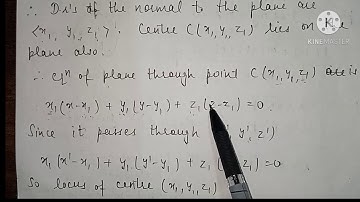 ∴ D.r's of the normal to the plane are
<x₁, y₁, z₁>. Centre C(x₁, y₁, z₁) lies on
plane also.
∴ eqⁿ of plane through point C(x₁, y₁, z₁) is
x₁(x-x₁) + y₁(y-y₁) + z₁(z-z₁)=0
Since it passes through y' z')
x₁(x'-x₁) + y₁(y'-y₁) + z₁ z₁)=0
So locus of centre (x₁, y₁, z₁)
KINEMASTER